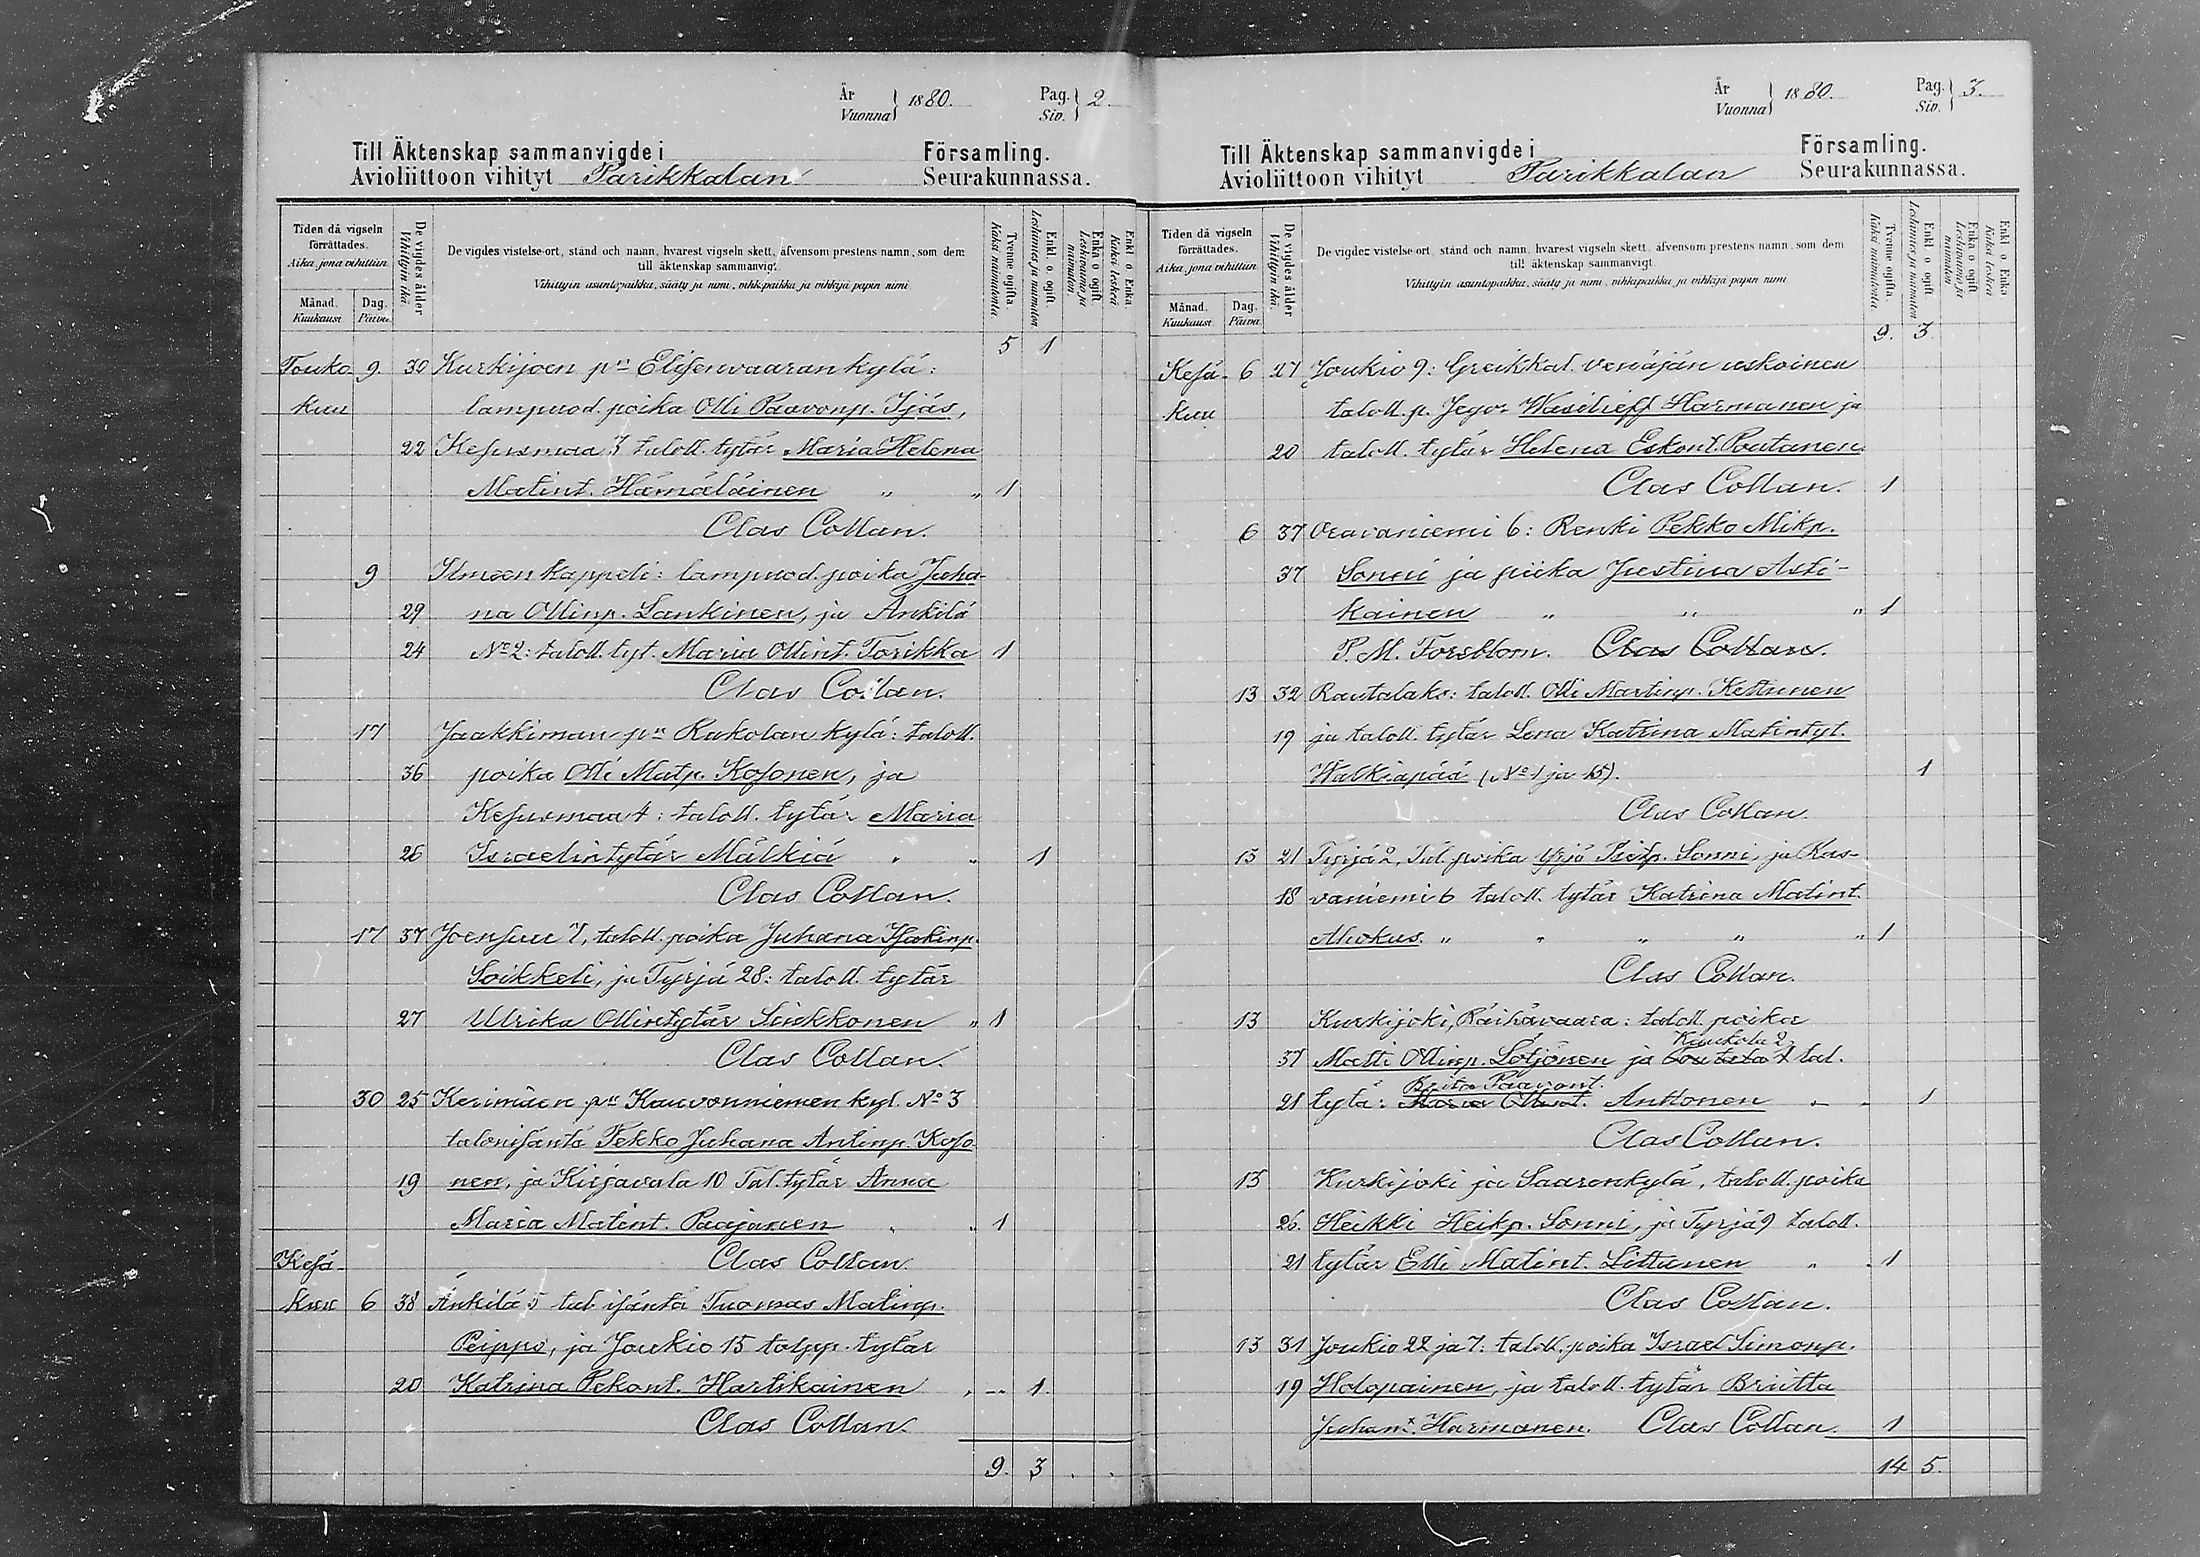 År Vuonna } 1880. Pag. Siv. } 2.
Till Äktenskap sammanvigde i Församling.
Avioliittoon vihityt Parikkalan Seurakunnassa.
Tiden då vigseln förrättades. Aika, jona vihittiin
Månad. Kuukausi
Dag. Päivä
De vigdes ålder Vihittyin ikä.
De vigdes vistelse-ort, stånd och namn, hvarest vigseln skett, äfvensom prestens namn, som dem till äktenskap sammanvigt.
Vihittyin asuntopaikka, sääty ja nimi, vihkipaikka ja vihkijä papin nimi
Tvenne ogifta. Kaksi naimatonta
Enkl. o. ogift. Leskimies ja naimaton
Enka o. ogift. Leskivaimo ja naimaton.
Enkl. o. Enka. Kaksi leskeä
5 1
Touko 9. 30 Kurkijoen pn Elisenvaaran kylä:
kuu lampuod. poika Olli Paavonp. Ijäs,
22 Kesusmaa 3 taloll. tytär Maria Helena
Matint. Hämäläinen " " 1
Clas Collan.
9 Ilmeen kappeli: lampuod. poika Juha-
29 na Ollinp. Lankinen, ja Ankilä
24 No 2: taloll. tyt. Maria Ollint. Torikka 1
Clas Collan.
17 Jaakkiman pn Kukolan kylä: taloll.
36 poika Olli Matp. Kosonen, ja
Kesusmaa 4: taloll. tytär Maria
26 Israelintytär Mälkiä " " 1
Clas Collan.
17 37 Joensuu 7, taloll. poika Juhana Isakinp.
Soikkeli, ja Tyrjä 28: taloll. tytär
27 Ulrika Ollintytär Siukkonen " 1
Clas Collan.
30 25 Kerimäen pn Kauvonniemen kyl. No 3
talonisäntä Pekko Juhana Antinp. Koso
19 nen, ja Kirjavala 10 Tal. tytär Anna
Maria Matint. Paajanen " " 1
Clas Collan
Kesä-
kuu 6 38 Ankilä 5 tal. isäntä Tuomas Matinp.
Peippo, ja Joukio 15 talpp. tytär
20 Katrina Pekont. Hartikainen " " 1.
Clas Collan.
9. 3 . .
År Vuonna } 1880. Pag. Siv. } 3.
Till Äktenskap sammanvigde i Församling.
Avioliittoon vihityt Parikkalan Seurakunnassa.
Tiden då vigseln förrättades. Aika, jona vihittiin
Månad. Kuukausi
Dag. Päivä
De vigdes ålder Vihittyin ikä.
De vigdes vistelse-ort, stånd och namn, hvarest vigseln skett, äfvensom prestens namn, som dem till äktenskap sammanvigt.
Vihittyin asuntopaikka, sääty ja nimi, vihkipaikka ja vihkijä papin nimi
Tvenne ogifta. Kaksi naimatonta
Enkl. o. ogift. Leskimies ja naimaton
Enka o. ogift. Leskivaimo ja naimaton
Enkl. o. Enka. Kaksi leskeä
9. 3.
Kesä- 6 27 Joukio 9: Greikkal. venäjän uskoinen
kuu taloll. p. Jegor Wasilieff Harmanen ja
20 taloll. tytär Helena Eskont. Poutanen
Clas Collan. 1
6 37 Oravaniemi 6: Renki Pekko Mikp.
37 Sonni ja piika Justina Asti-
kainen " " " 1
P. M. Forsblom. Clas Collan.
13 32 Rautalaks: taloll. Olli Martinp. Kettunen
19 ja taloll. tytär Lena Katrina Matintyt.
Walkiapää (No 1 ja 15). 1
Clas Collan.
13 21 Tyrjä 2, Tal. poika Yrjö Pietp. Sonni, ja Ras-
18 vaniemi 6 taloll. tytär Katrina Matint.
Ahokas. " " " " " 1
Clas Collan.
13 Kurkijoki, Räihävaara: taloll. poika
Kinkola 2
37 Matti Ollinp. Lötjönen ja tal.
Brita Paavont.
21 tytä: Maria Ollint. Anttonen " " 1
Clas Collan.
13 Kurkijoki ja Saarenkylä, taloll. poika
26. Heikki Heikp. Sonni, ja Tyrjä 9 taloll.
21 tytär Elli Matint. Littunen " " 1
Clas Collan.
13 31 Joukio 22 ja 7: taloll. poika Israel Simonp.
19 Holopainen, ja taloll. tytär Briitta
Juhant. Harmanen. Clas Collan. 1
14 5.